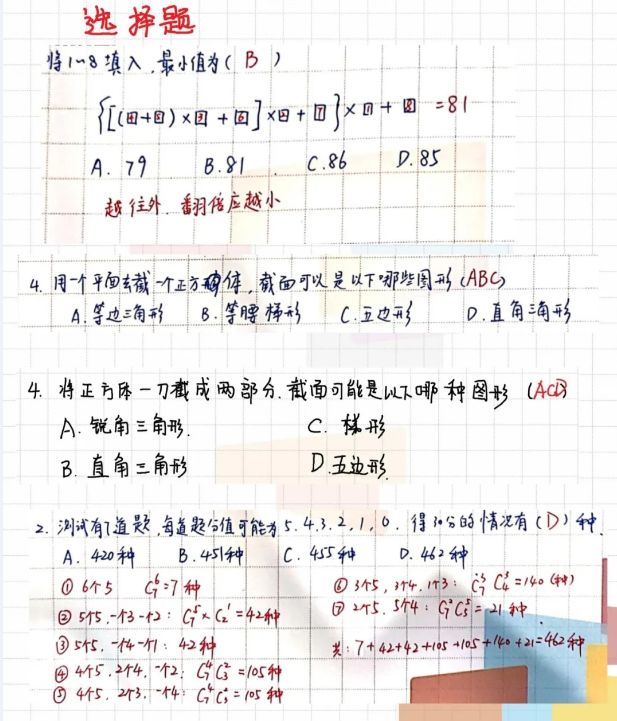 选择题
将1~8填入,最小值为( B )
{[(4+5)×3+6]×2+7}×1+8 =81
A. 79 B. 81 C. 86 D. 85
越往外,翻倍应越小
4. 用一个平面去截一个正方体,截面可以是以下哪些图形(ABC)
A. 等边三角形 B. 等腰梯形 C. 五边形 D. 直角三角形
4. 将正方体一刀截成两部分.截面可能是以下哪种图形 (ACD)
A. 锐角三角形. C. 梯形
B. 直角三角形 D. 五边形.
2. 测试有7道题,每道题分值可能为5.4.3.2,1,0. 得30分的情况有(D)种.
A. 420种 B. 451种 C. 455种 D. 462种
① 6个5 C₇⁶=7种
② 5个5.一个3一个2: C₇⁵×C₂¹=42种
③ 5个5,一个4一个1: 42种
④ 4个5.2个4,一个2: C₇⁴C₃²=105种
⑤ 4个5.2个3,一个4: C₇⁴C₃²=105种
⑥ 3个5,3个4,1个3: C₇³C₄³=140(种)
⑦ 2个5.5个4: C₇²C₅⁵=21种
共: 7+42+42+105+105+140+21=462种